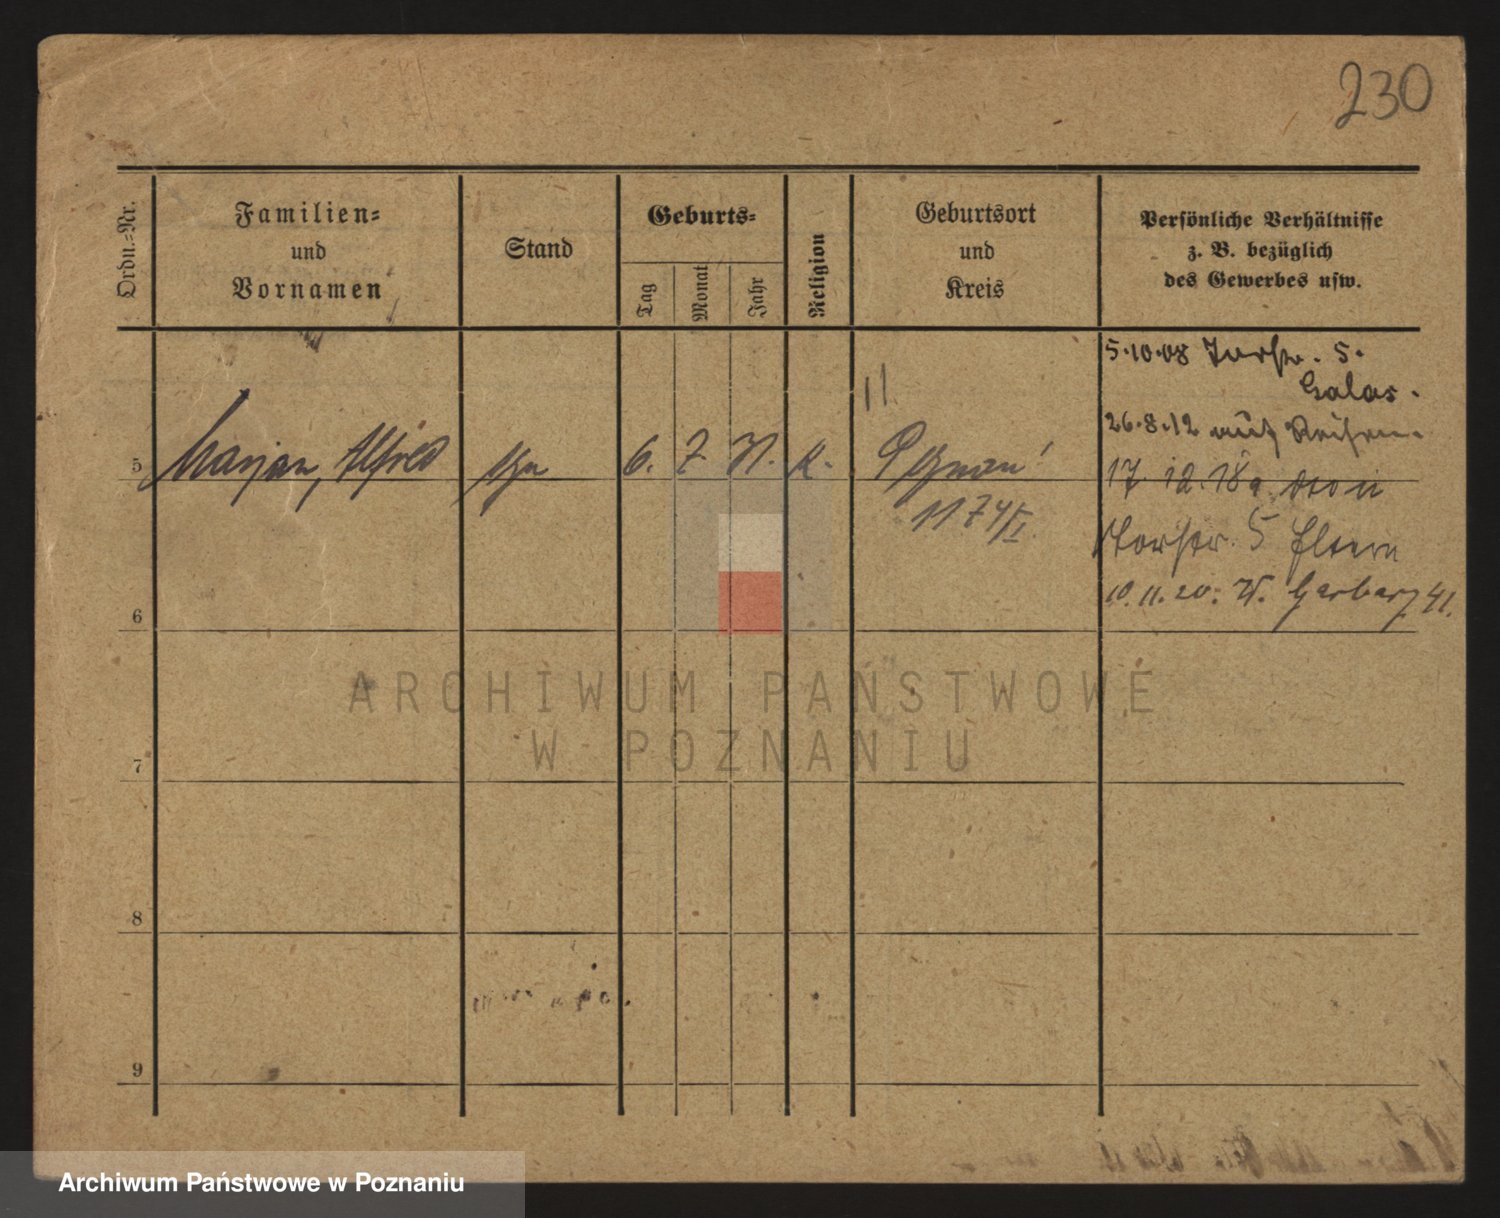 230
Ordn.-Nr.
Familien-
und
Vornamen
Stand
Geburts-
Tag
Monat
Jahr
Religion
Geburtsort
und
Kreis
Persönliche Verhältnisse
z. B. bezüglich
des Gewerbes usw.
5.10.08 Torstr. 5.
11.
26.8.12 auf Reisen
5 Marjan, Alfred 6. 7. K.
17.12.18
Torstr. 5 Eltern
1174/I
10.11.20. W. Garbary 41.
6
ARCHIWUM PAŃSTWOWE
W POZNANIU
7
8
9
Archiwum Państwowe w Poznaniu